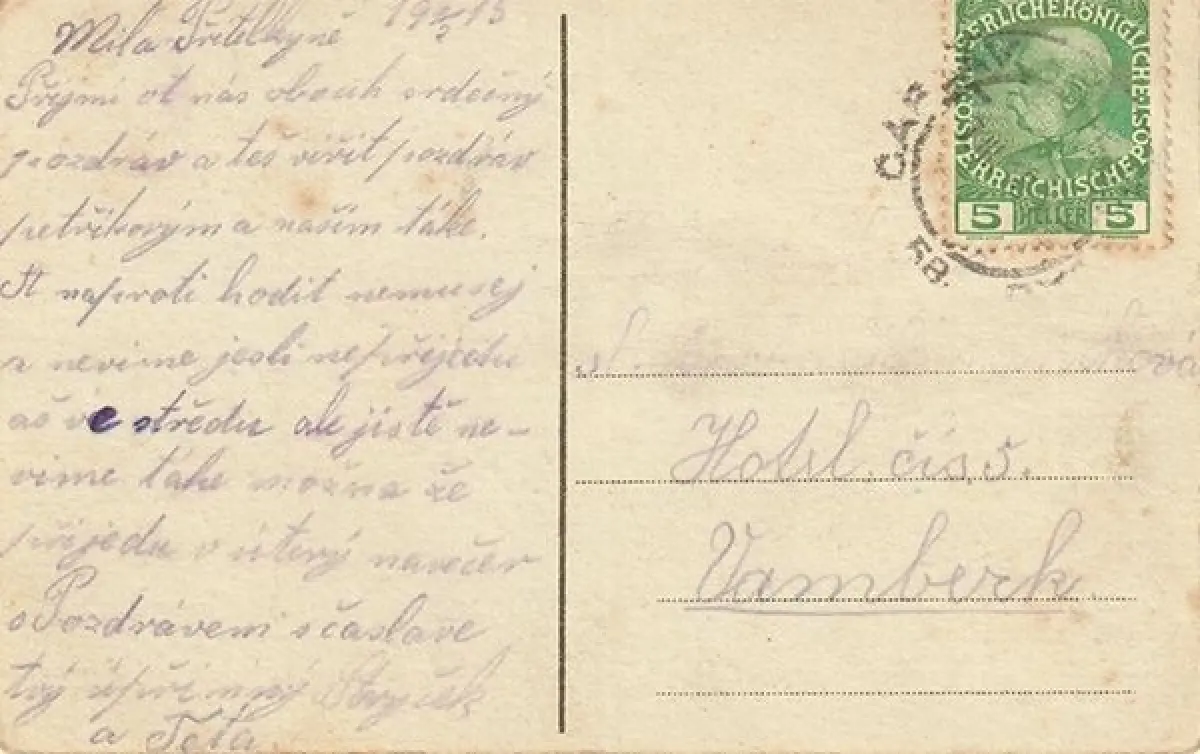 Mila Přítelkyně 19 13
Přijmi ot nás obouch srdečný
pozdráv a teš viřit pozdráv
petřikovým a našim táke.
naproti hodit nemusej
a nevime jesli nepřijedu
aš ve středu ale jistě ne-
vime táke možna že
přijedu v úterý navečer
s Pozdrávem s čáslave
tvý úpřimný Strýček
a Teta
KAISERLICHE KÖNIGLICHE ÖSTERREICHISCHE POST
5 HELLER 5
ČÁS
5B.
ová
Hotel. čís, 5.
Vamberk